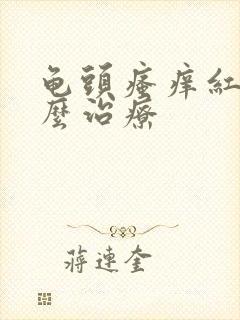 龟頭瘙痒紅
麼治療
蔣連奎